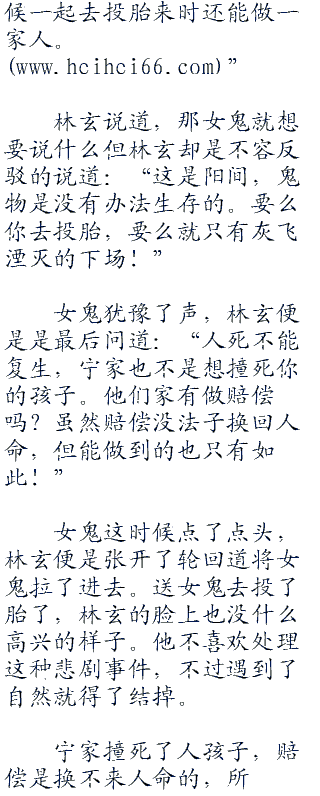 候一起去投胎来时还能做一
家人。
(www.hcihci66.com)”
林玄说道，那女鬼就想
要说什么但林玄却是不容反
驳的说道：“这是阳间，鬼
物是没有办法生存的。要么
你去投胎，要么就只有灰飞
湮灭的下场！”
女鬼犹豫了声，林玄便
是是最后问道：“人死不能
复生，宁家也不是想撞死你
的孩子。他们家有做赔偿
吗？虽然赔偿没法子换回人
命，但能做到的也只有如
此！”
女鬼这时候点了点头，
林玄便是张开了轮回道将女
鬼拉了进去。送女鬼去投了
胎了，林玄的脸上也没什么
高兴的样子。他不喜欢处理
这种悲剧事件，不过遇到了
自然就得了结掉。
宁家撞死了人孩子，赔
偿是换不来人命的，所